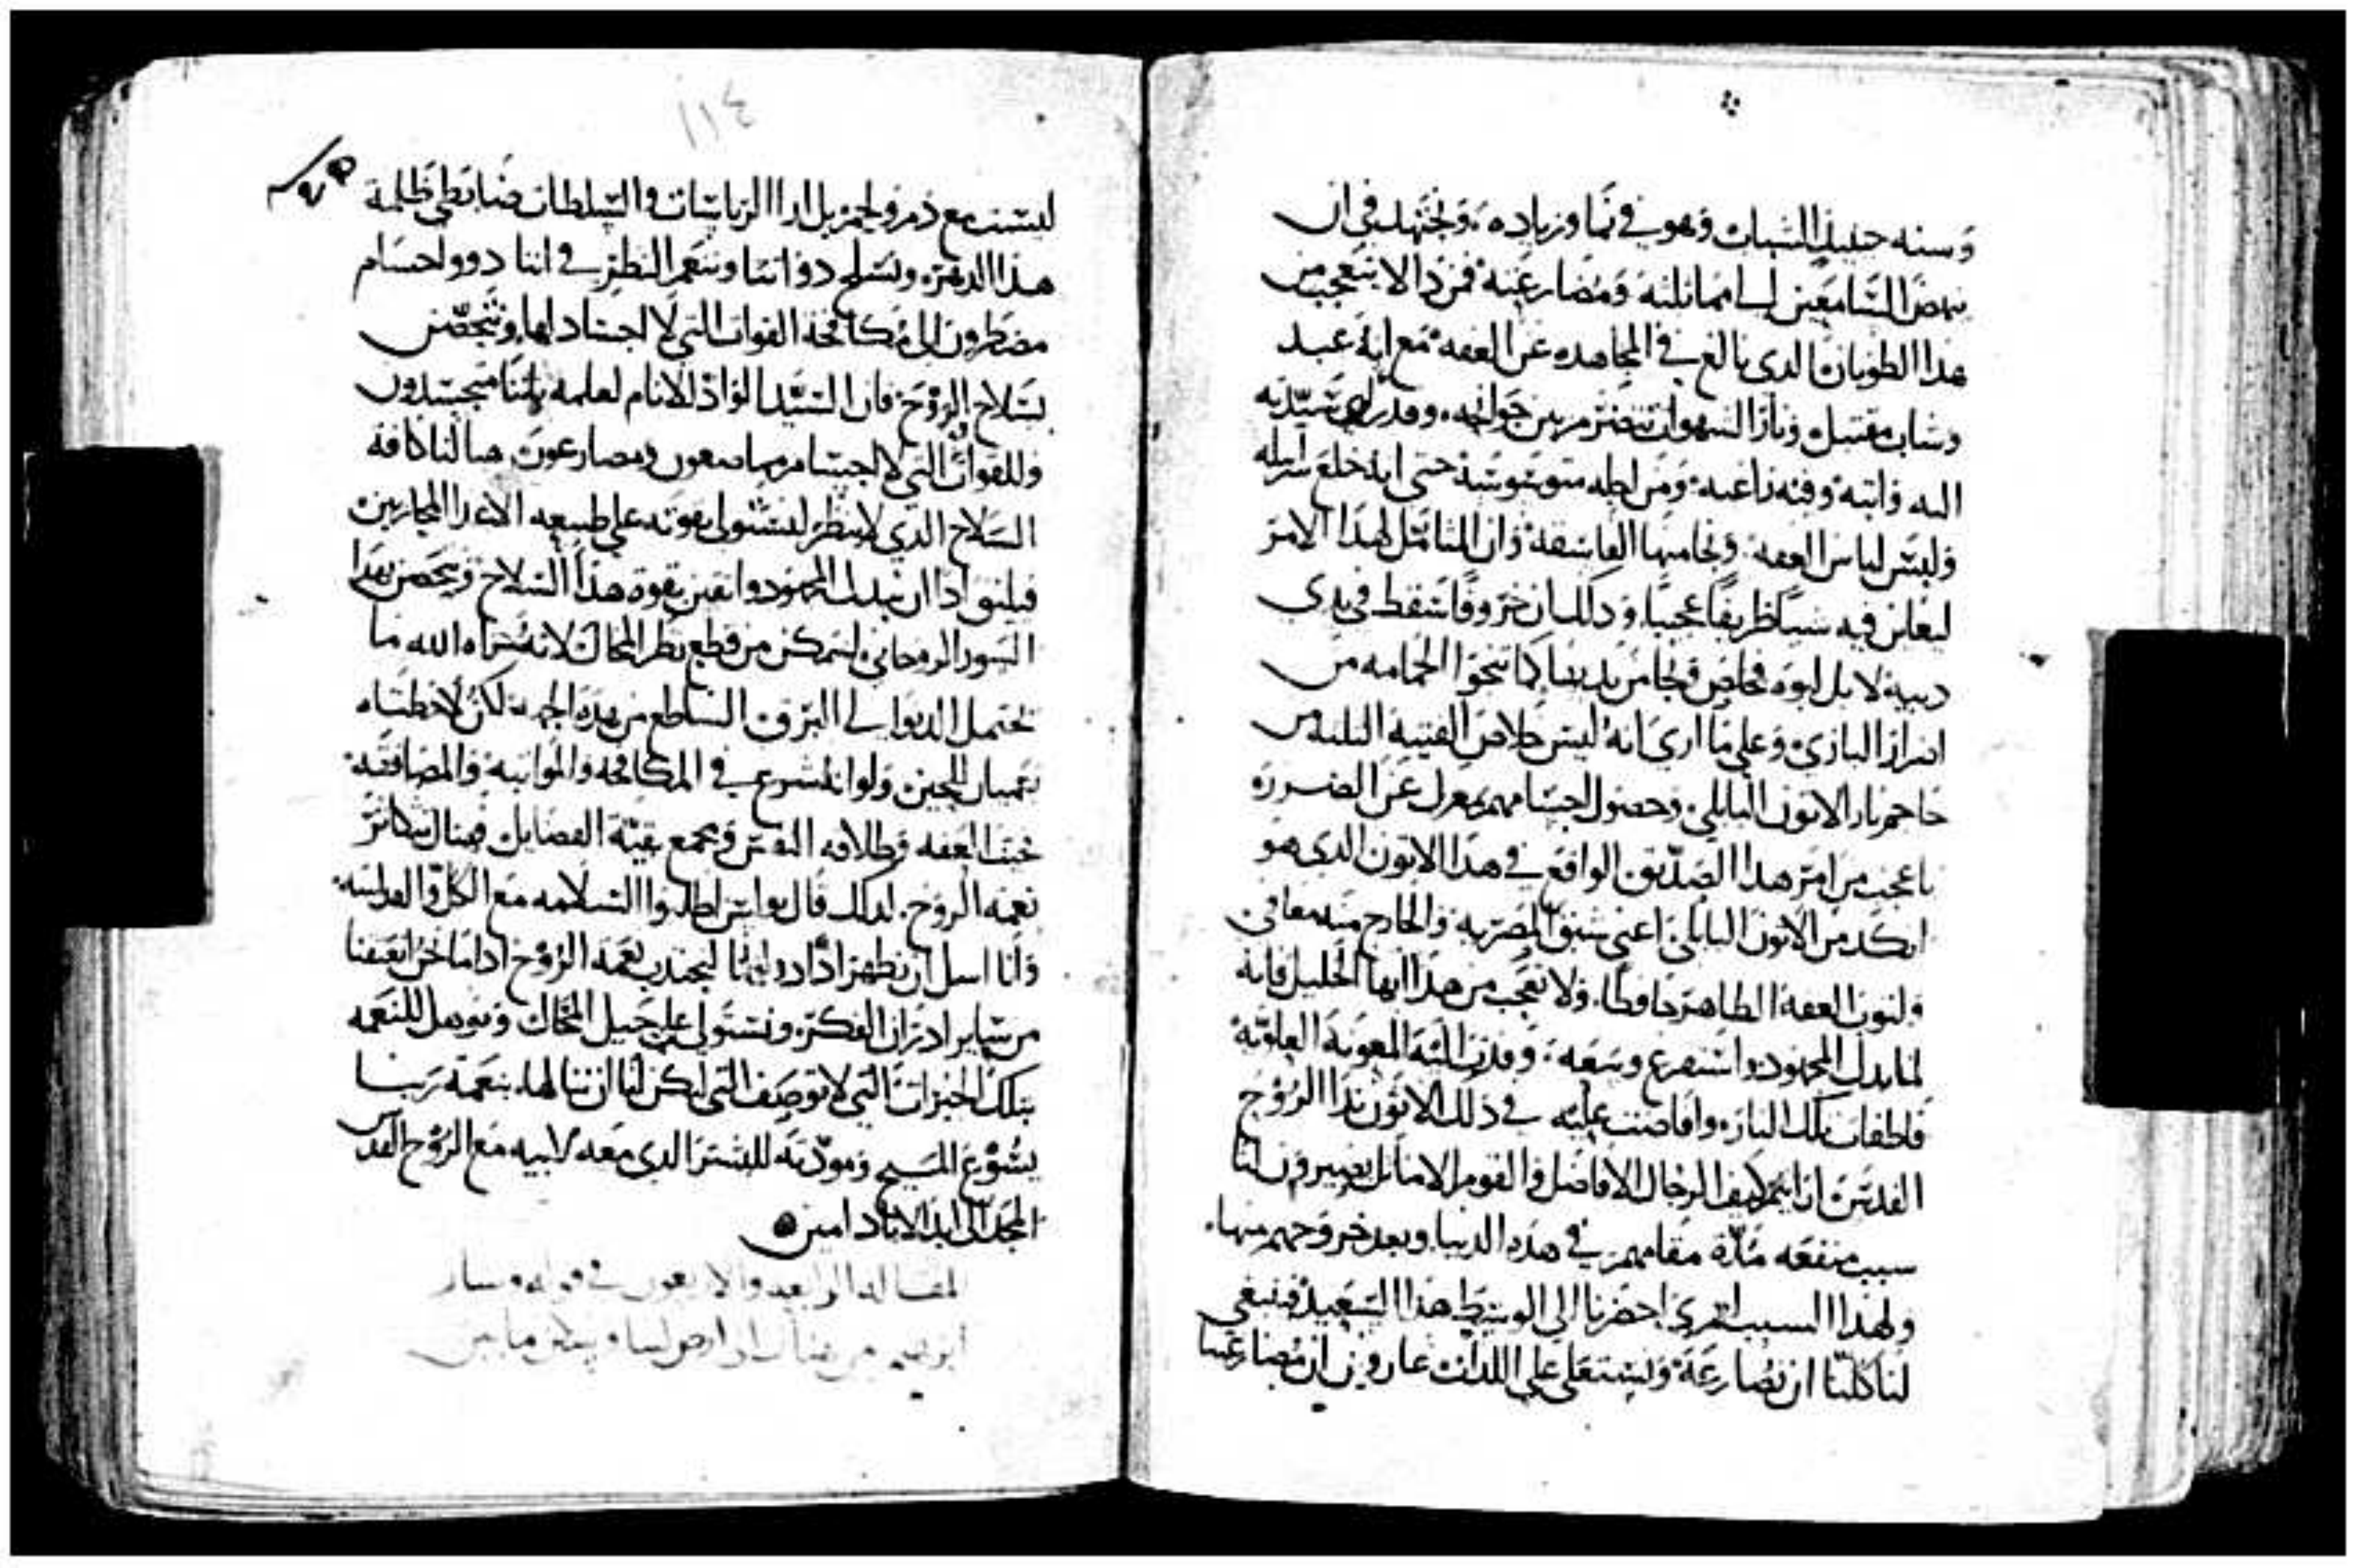 وسنه حينيذ الشباب وهو في نما وزياده، ويجتهد في ان
ينهض السامعين الى مماثلته ومضارعته فمن ذا لا يتعجب من
هذا الطوبان الذي بالغ في المجاهده عن العفه مع انه عبد
وشاب مقتبل ونار الشهوات تضطرم بين جوانحه، وقدراى سيدته
اليه واثبه وفيه راغبه ومن اجله متوسوسه حتى انه خلع سرابله
ولبس لباس العفه ونجا منها الفاسقه وان المتامل لهذا الامر
ليعاين فيه شياً ظريفاً عجيباً وذلك ان خروفاً سقط في يدي
ذيبه لا بل لبوه فخلص ونجا من يديها كما تنجوا الحمامه من
اضرار البازي وعلى ما ارى انه ليس خلاص الفتيه الثلثه من
جاحم نار الاتون البابلي وحصول اجسامهم بمعزل عن الضرر
باعجب من امر هذا الصديق الواقع في هذا الاتون الذي هو
انكد من الاتون البابلي اعني شبق المصريه والخارج منه معافى
ولثوب العفه الطاهر حافظاً، ولا تعجب من هذا ايها الخليل فانه
لما بذل المجهود واستفرغ وسعه، وفدت اليه المعونه العلويه
فاطفات تلك النار، وافاضت عليه في ذلك الاتون ندا الروح
القدس ارايتم كيف الرجال الافاضل والقوم الاماثل يصيرون لنا
سبب منفعه مدة مقامهم في هذه الدنيا وبعد خروجهم منها،
ولهذا السبب احضرنا الى الوسط هذا السعيد فينبغي
لنا كلنا ان نضارعه ونستعلي على اللذات عارفين ان مصارعتنا
١١٤
ليست مع ذم ولحم بل ازا الرياسات والسلطات ضابطي ظلمة
هذا الدهر، ونسلح ذواتنا وننعم النظر في اننا ذوو اجسام
مضطرون الى مكافحة القوات التي لا اجساد لها، ونتحصن
بسلاح الروح فان السيد الواد الانام لعلمه باننا متجسدون
وللقوات التي لا اجسام ومصارعون هيا لنا كافة
السلاح الذي لا ينظر لنستولي بقوته على طبيعه الاعدا المحاربين
فيليق اذا ان نبذل المجهود واثقين بقوة هذا السلاح ونتحصن بهذا
السور الروحاني لنتمكن من قطع نظر المحال لانه شراه الله ما
يحتمل الدنوا الى البرق الساطع من هذه الجهه لكن لاخطناه
الجبين ولو انه شرع في المكافحه والمواثبه والمصافقه
نحب العفه وطلاقه النفس ونجمع بقية الفضايل فينال بتكاثر
نعمه الروح، لذلك قال بولس اطلبوا السلامه مع الكل والقداسه
وانا اسل ان نطهر ذواتنا لنجتذب نعمه الروح اذا ما نحن انعتقنا
من ساير ادران الفكر، ونستولي على حيل المحال ونوهل للتنعمه
بتلك الخيرات التي لا توصف التي ليكن لنا ان ننالها، بنعمة ربنا
يسوع المسيح ومودته للبشر الذي معه لابيه مع الروح القدس
المجد الى ابد الاباد امين
المقاله الرابعه والاربعون في